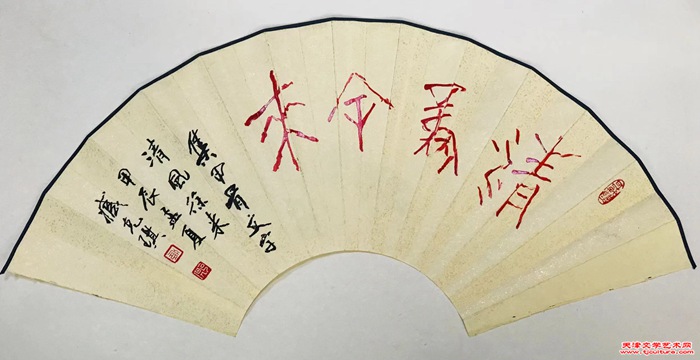 清風徐來
集甲骨文字
清風徐来
甲辰孟夏
臧克琪
天津文学艺术网
www.tjculture.com